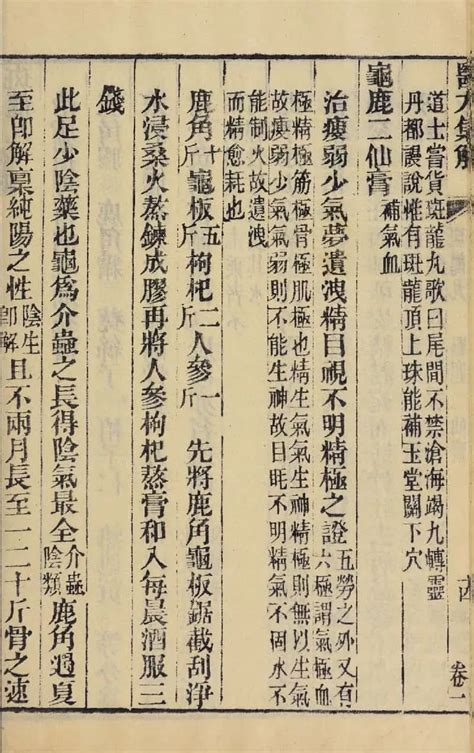 醫方集解
十四 卷一
道士嘗貨斑龍九歌曰尾閭不禁滄海竭九轉靈
丹都謾說惟有斑龍頂上珠能補玉堂關下穴
龜鹿二仙膏 補氣血
治瘦弱少氣夢遺洩精目視不明精極之證 五勞之外又有六極謂氣極血
極精極筋極骨極肌極也精生氣氣生神精極則無以生氣
故瘦弱少氣氣弱則不能生神故目眊不明精氣不固水不
能制火故遺洩
而精愈耗也
鹿角十斤龜板五斤枸杞二斤人參一斤 先將鹿角龜板鋸截刮淨
水浸桑火熬鍊成膠再將人參枸杞熬膏和入每晨酒服三
錢
此足少陰藥也龜為介蟲之長得陰氣最全 介蟲陰類 鹿角遇夏
至即解稟純陽之性 陰生即解 且不兩月長至一二十斤骨之速